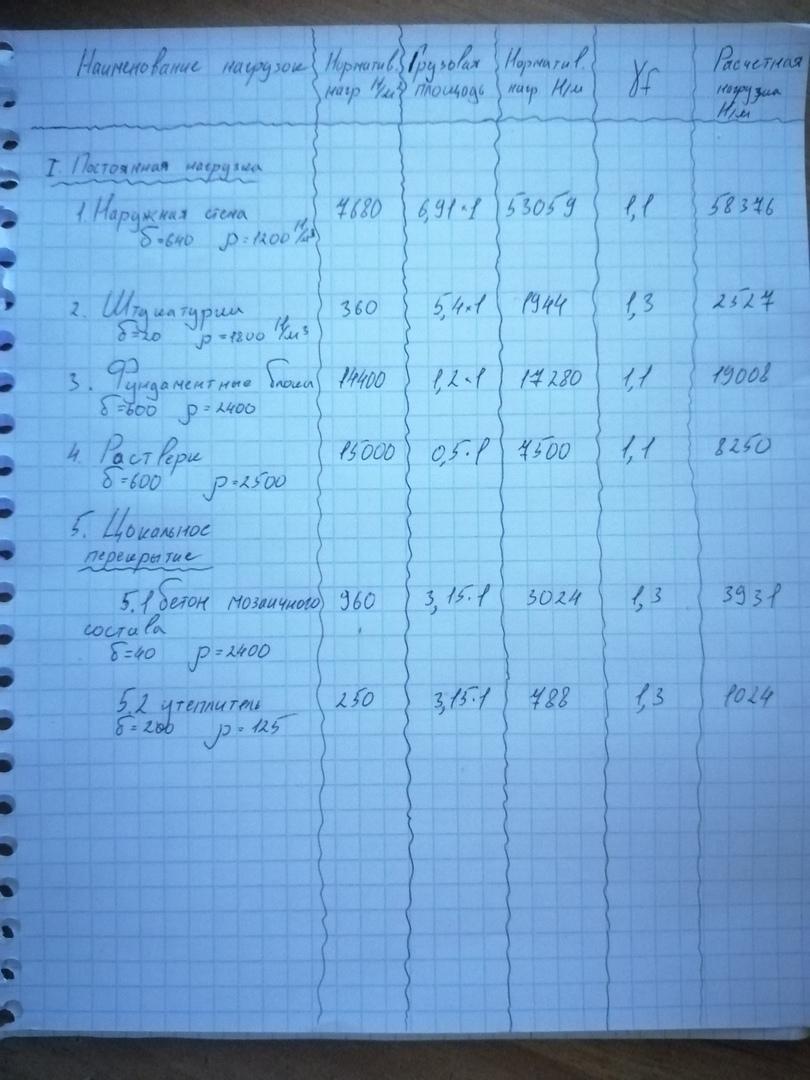 Наименование нагрузок Норматив. Грузовая Норматив. γf Расчетная
нагр Н/м² площадь нагр Н/м нагрузка
Н/м
I. Постоянная нагрузка
1. Наружная стена 7680 6,91·1 53059 1,1 58376
δ=640 ρ=1200 Н/м³
2. Штукатурки 360 5,4·1 1944 1,3 2527
δ=20 ρ=1800 Н/м³
3. Фундаментные блоки 14400 1,2·1 17280 1,1 19008
δ=600 ρ=2400
4. Растверк 15000 0,5·1 7500 1,1 8250
δ=600 ρ=2500
5. Цокальное
перекрытие
5.1 бетон мозаичного 960 3,15·1 3024 1,3 3931
состава
δ=40 ρ=2400
5.2 утеплитель 250 3,15·1 788 1,3 1024
δ=200 ρ=125